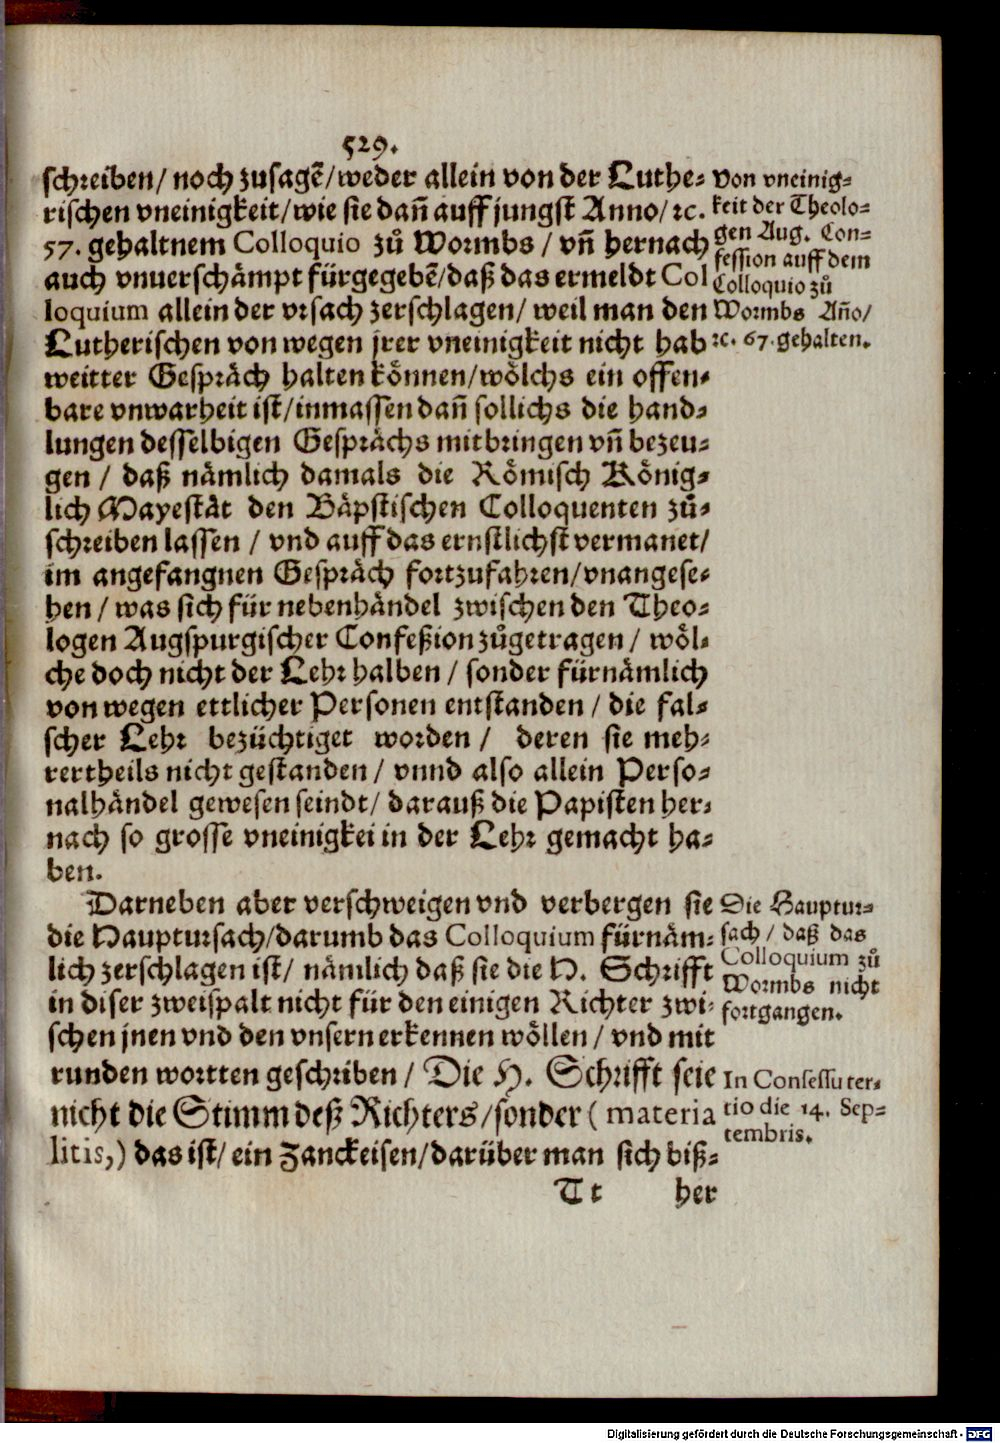 529.
schreiben/ noch zusagẽ/ weder allein von der Luthe-
rischen vneinigkeit/ wie sie dañ auff jungst Anno/ ꝛc.
57. gehaltnem Colloquio zů Wormbs / vñ hernach
auch vnuerschämpt fürgegebẽ/ daß das ermeldt Col
loquium allein der vrsach zerschlagen/ weil man den
Lutherischen von wegen jrer vneinigkeit nicht hab
weitter Gespräch halten können/ wölchs ein offen-
bare vnwarheit ist/ inmassen dañ sollichs die hand-
lungen desselbigen Gesprächs mitbringen vñ bezeu-
gen / daß nämlich damals die Römisch König-
lich Mayestät den Bäpstischen Colloquenten zů-
schreiben lassen / vnd auff das ernstlichst vermanet/
im angefangnen Gespräch fortzufahren/ vnangese-
hen / was sich für nebenhändel zwischen den Theo-
logen Augspurgischer Confeßion zůgetragen / wöl-
che doch nicht der Lehr halben / sonder fürnämlich
von wegen ettlicher Personen entstanden / die fal-
scher Lehr bezüchtiget worden / deren sie meh-
rertheils nicht gestanden / vnnd also allein Perso-
nalhändel gewesen seindt/ darauß die Papisten her-
nach so grosse vneinigkei in der Lehr gemacht ha-
ben.
Darneben aber verschweigen vnd verbergen sie
die Hauptursach/ darumb das Colloquium fürnäm-
lich zerschlagen ist/ nämlich daß sie die H. Schrifft
in diser zweispalt nicht für den einigen Richter zwi-
schen jnen vnd den vnsern erkennen wöllen / vnd mit
runden wortten geschriben / Die H. Schrifft seie
nicht die Stimm deß Richters/ sonder ( materia
litis,) das ist/ ein Zanckeisen/ darüber man sich biß-
Tt her
Von vneinig-
keit der Theolo-
gen Aug. Con-
fession auff dem
Colloquio zů
Wormbs Año/
ꝛc. 67. gehalten.
Die Hauptur-
sach / daß das
Colloquium zů
Wormbs nicht
fortgangen.
In Consessu ter-
tio die 14. Sep-
tembris.
Digitalisierung gefördert durch die Deutsche Forschungsgemeinschaft - DFG